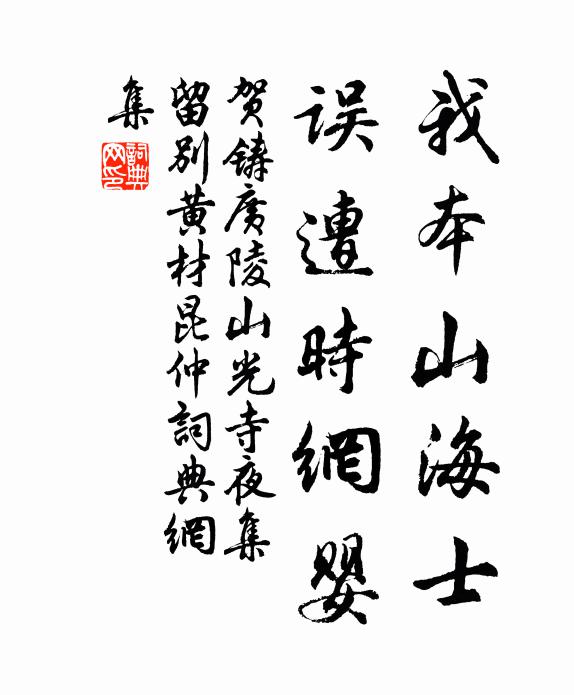 我本山海士
误遭時網婴
贺鑄廣陵山光寺夜集
留别黄材昆仲詞典網
集
詞典網印